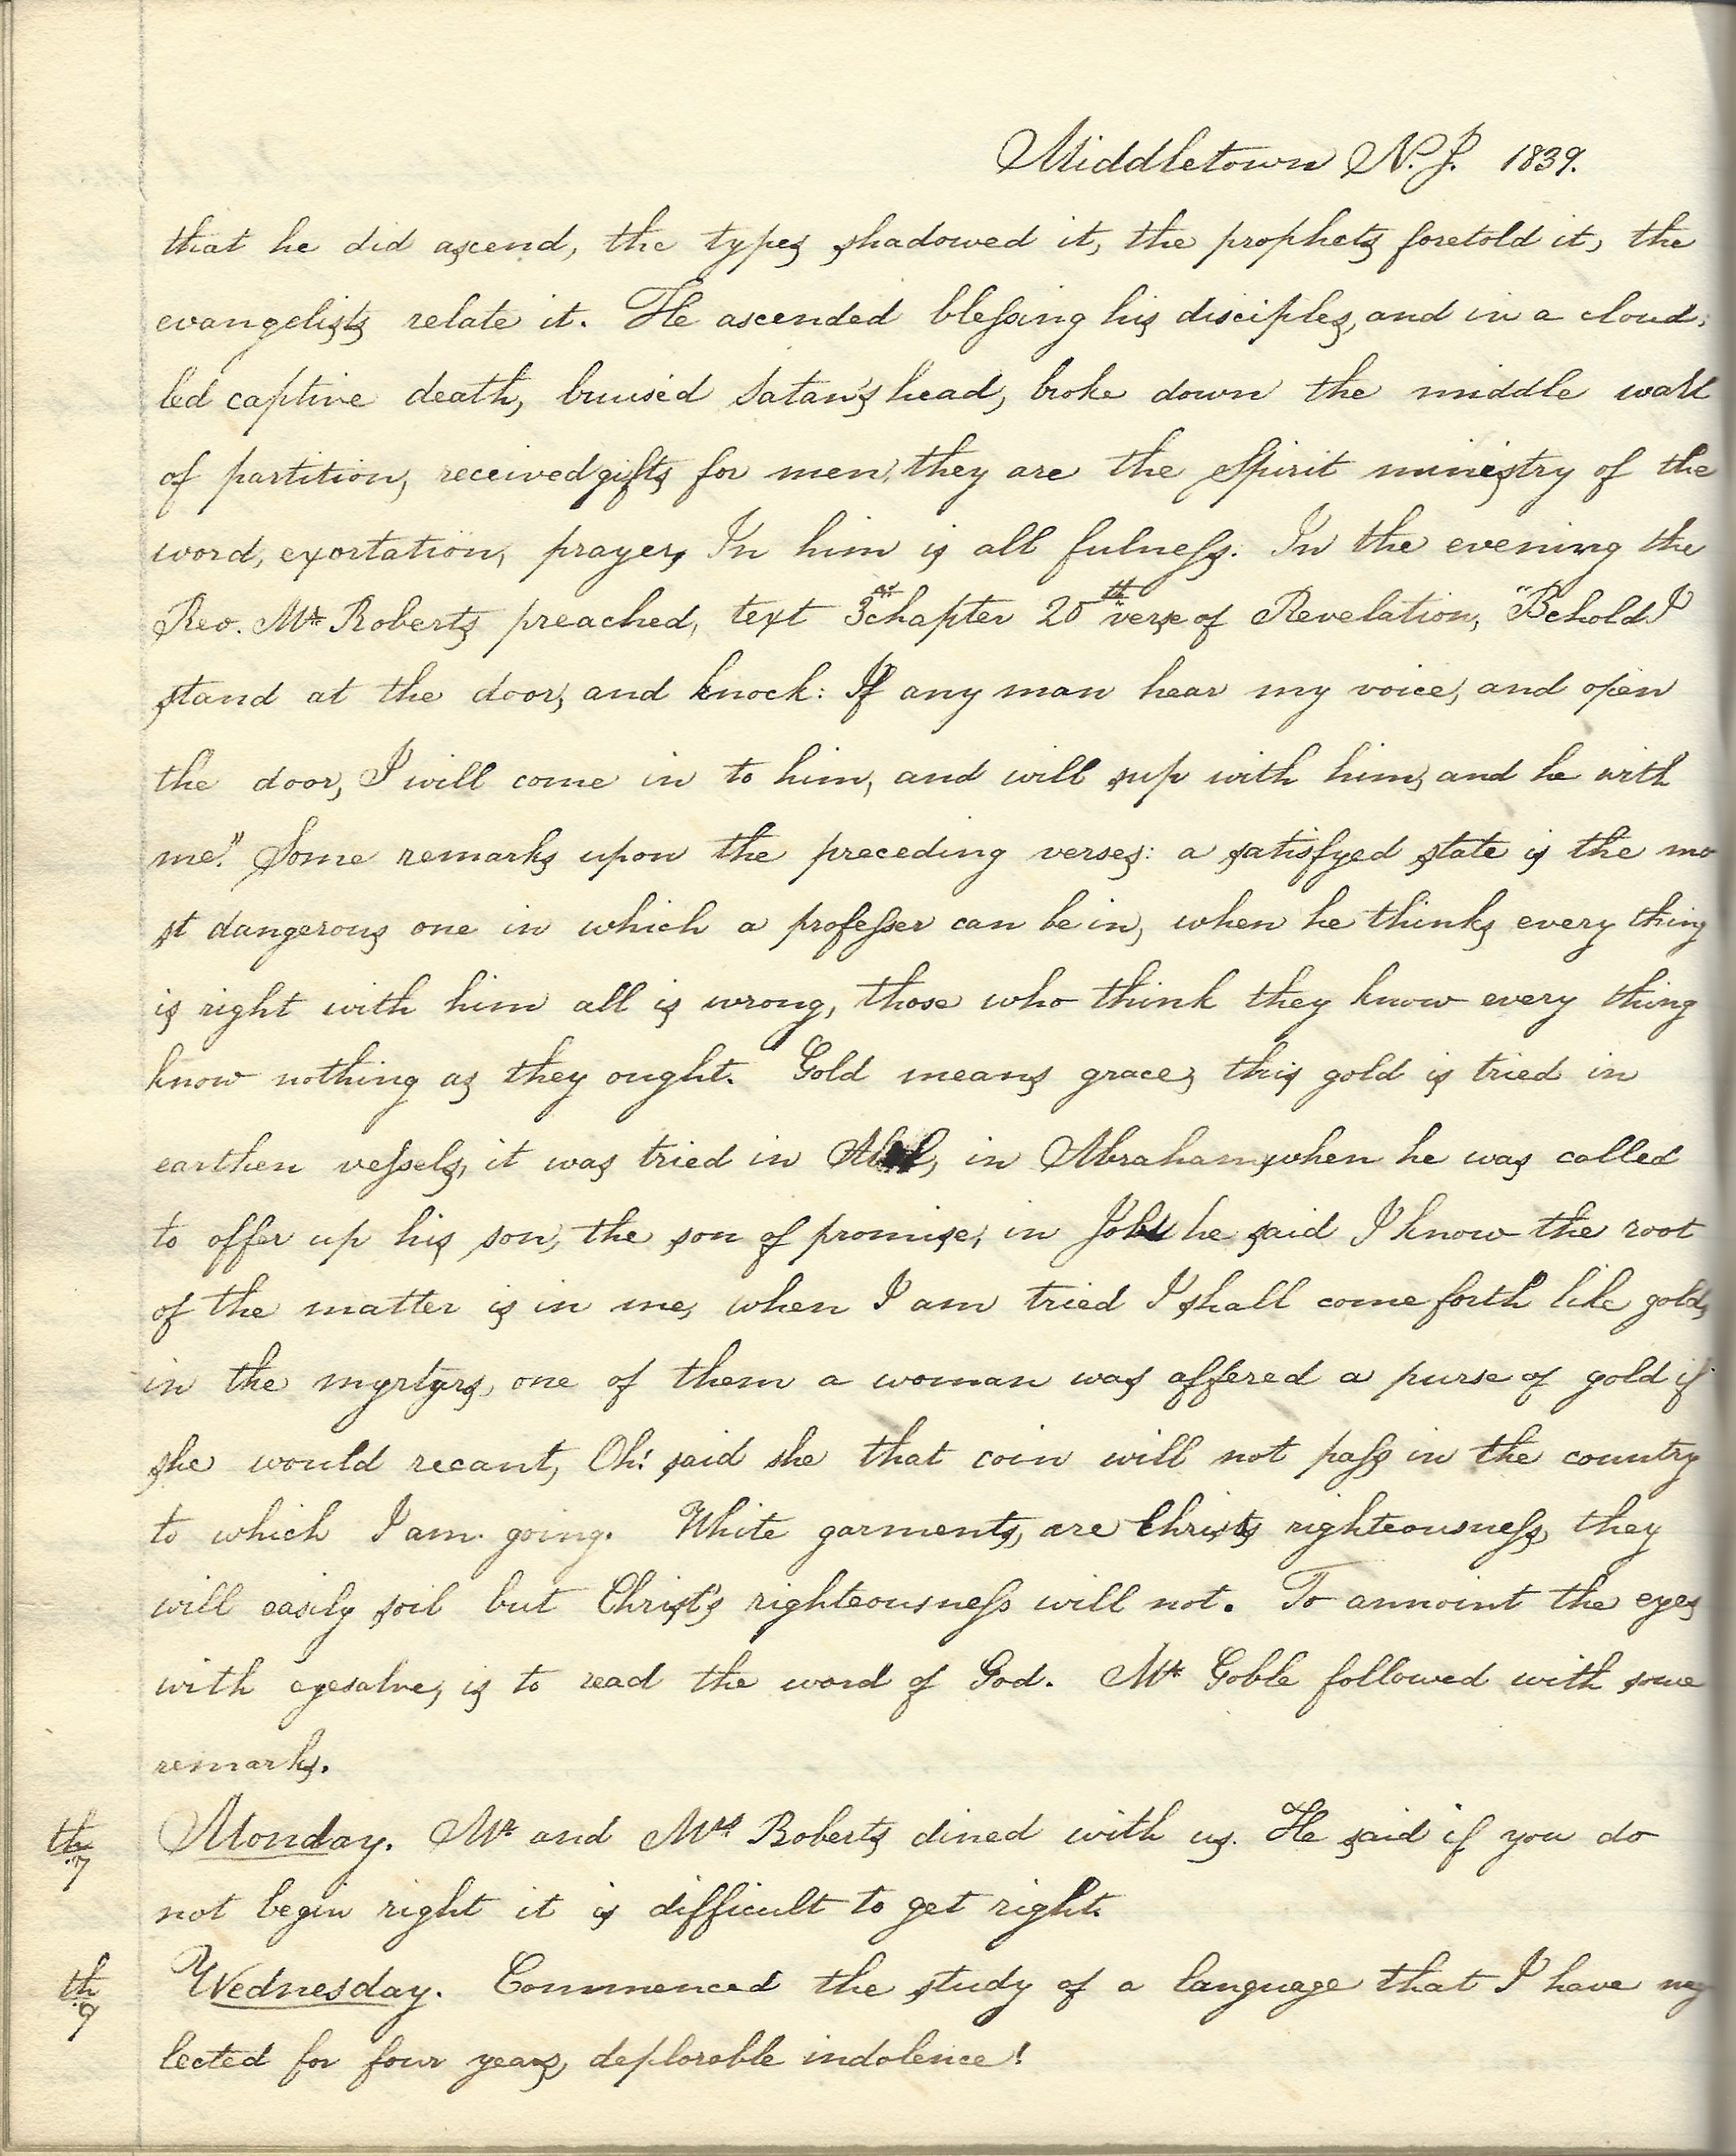 Middletown N.J. 1839.
that he did ascend, the types shadowed it, the prophets foretold it, the
evangelists relate it. He ascended bleſsing his disciples, and in a cloud;
led captive death, bruised Satan's head, broke down the middle wall
of partition, received gifts for men, they are the Spirit ministry of the
word, exortation, prayer, In him is all fulneſs. In the evening the
Rev. Mr Roberts preached, text 3 chapter 20th verse of Revelation, "Behold I
stand at the door, and knock: If any man hear my voice, and open
the door, I will come in to him, and will sup with him, and he with
me." Some remarks upon the preceding verses: a satisfyed state is the mo
st dangerous one in which a profeſser can be in, when he thinks every thing
is right with him all is wrong, those who think they know every thing
know nothing as they ought. Gold means grace, this gold is tried in
earthen veſsels, it was tried in in Abraham, when he was called
to offer up his son, the son of promise, in Job he said I know the root
of the matter is in me, when I am tried I shall come forth like gold,
in the myrtyrs, one of them a woman was offered a purse of gold if
she would recant, Oh! said she that coin will not paſs in the country
to which I am going. White garments, are Christs righteousneſs, they
will easily soil but Christ's righteousneſs will not. To annoint the eyes
with eyesalve, is to read the word of God. Mr Goble followed with some
remarks.
7th Monday. Mr and Mrs Roberts dined with us. He said if you do
not begin right it is difficult to get right.
9th Wednesday. Commenced the study of a language that I have neg
lected for four years, deplorable indolence!